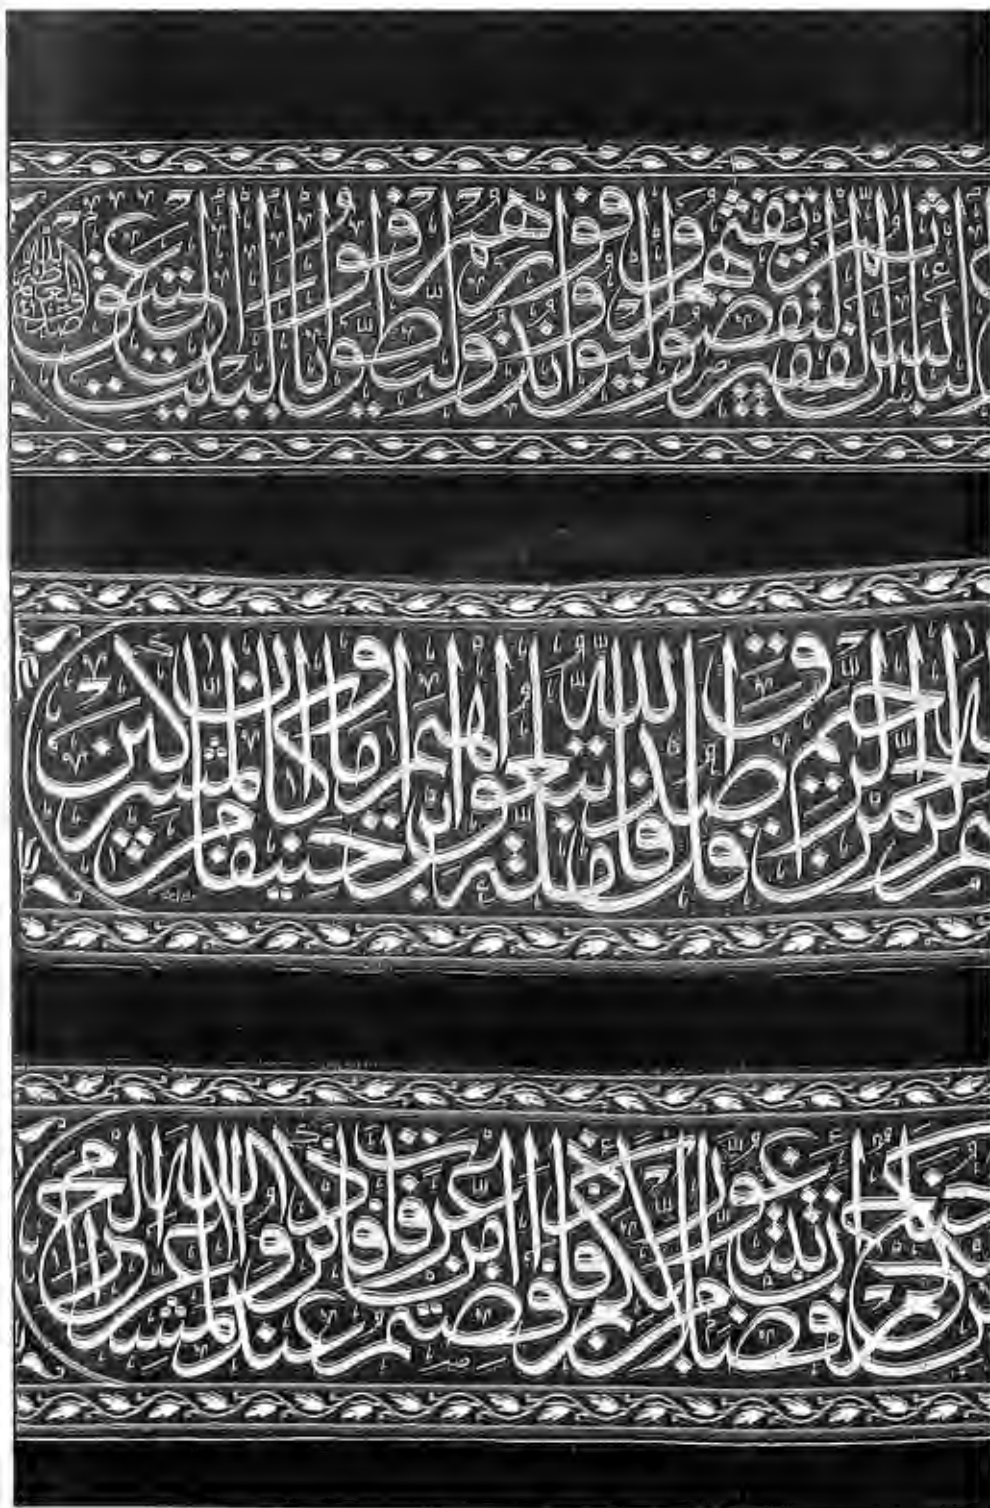 البائس الفقير ثم ليقضوا تفثهم وليوفوا نذورهم وليطوفوا بالبيت العتيق
الرحمن الرحيم قل صدق الله فاتبعوا ملة ابراهيم حنيفا وما كان من المشركين
جناح ان تبتغوا فضلا من ربكم فاذا افضتم من عرفات فاذكروا الله عند المشعر الحرام